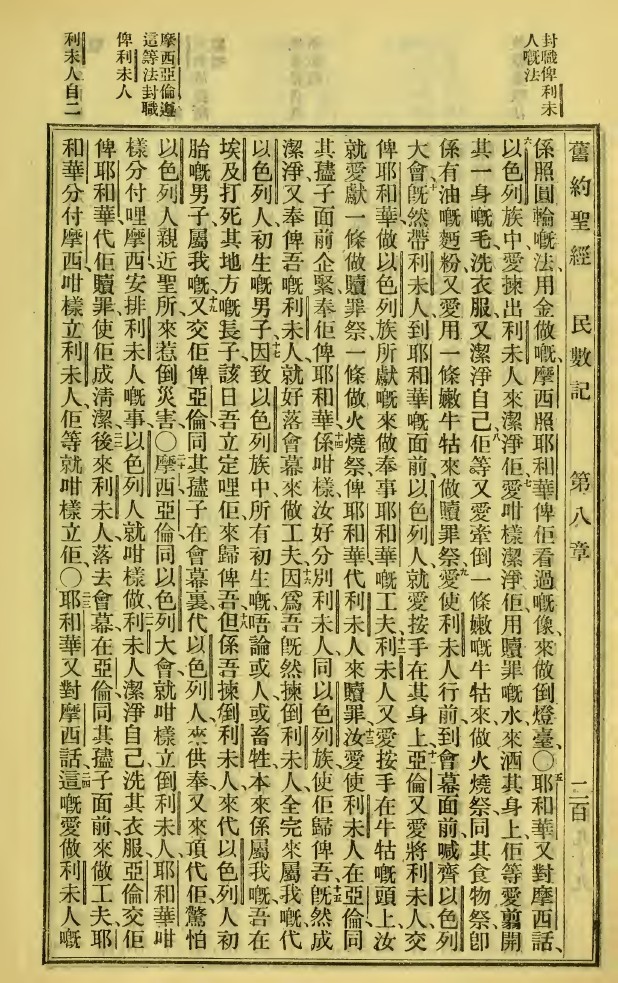 封職俾利未
人嘅法
摩西亞倫遵
這等法封職
俾利未人
利未人自二
舊約聖經 民數記 第八章 二百
係照圓輪嘅法用金做嘅、摩西照耶和華俾佢看過嘅像來做倒燈臺、〇五耶和華又對摩西話、
六以色列族中愛揀出利未人來潔淨佢、七愛咁樣潔淨佢用贖罪嘅水來洒其身上、佢等愛剪開
其一身嘅毛、洗衣服、又潔淨自己、八佢等又愛牽倒一條嫩嘅牛牯來做火燒祭、同其食物祭、卽
係有油嘅麵粉、又愛用一條嫩牛牯來做贖罪祭、九愛使利未人行前到會幕面前、喊齊以色列
大會、十旣然帶利未人到耶和華嘅面前、以色列人就愛按手在其身上、十一亞倫又愛將利未人交
俾耶和華、做以色列族所獻嘅來做奉事耶和華嘅工夫、十二利未人又愛按手在牛牯嘅頭上、汝
就愛獻一條做贖罪祭、一條做火燒祭俾耶和華、代利未人來贖罪、十三汝愛使利未人在亞倫同
其孻子面前企緊、奉佢俾耶和華、十四係咁樣汝好分別利未人同以色列族、使佢歸俾吾、十五旣然成
潔淨、又奉俾吾嘅利未人、就好落會幕來做工夫、十六因爲吾旣然揀倒利未人、全完來屬我嘅、代
以色列人初生嘅男子、十七因致以色列族中所有初生嘅、唔論或人、或畜牲、本來係屬我嘅、吾在
埃及打死其地方嘅長子、該日吾立定哩佢來歸俾吾、十八但係吾揀倒利未人來代以色列人初
胎嘅男子屬我嘅、十九又交佢俾亞倫同其孻子、在會幕裏代以色列人來供奉、又來項代佢、驚怕
以色列人親近聖所來惹倒災害、〇二十摩西亞倫同以色列大會就咁樣立倒利未人、耶和華咁
樣分付哩摩西安排利未人嘅事、以色列人就咁樣做、二一利未人潔淨自己、洗其衣服、亞倫交佢
俾耶和華、代佢贖罪、使佢成清潔、二二後來利未人落去會幕、在亞倫同其孻子面前來做工夫、耶
和華分付摩西咁樣立利未人、佢等就咁樣立佢、〇二三耶和華又對摩西話、二四這嘅愛做利未人嘅